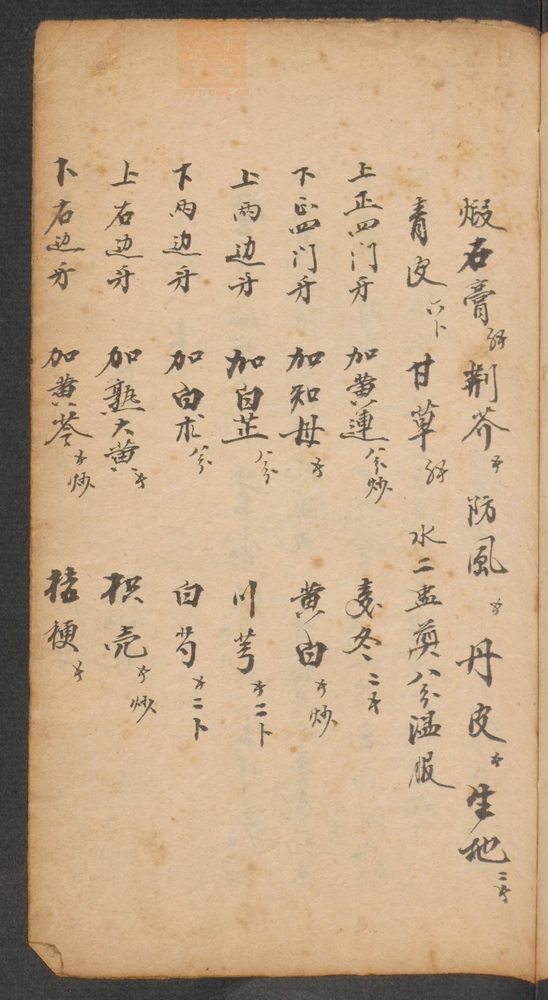 煅石膏 荆芥 防風 丹皮 生地 二
青皮 六卜 甘草 水二盅煎八分温服
上正四门牙 加黄連 八分 炒 麦冬 二
下正四门牙 加知母 黄白 炒
上两边牙 加白芷 八分 川芎 二卜
下两边牙 加白朮 八分 白芍 二卜
上右边牙 加熟大黄 枳壳 炒
下右边牙 加黄芩 炒 桔梗